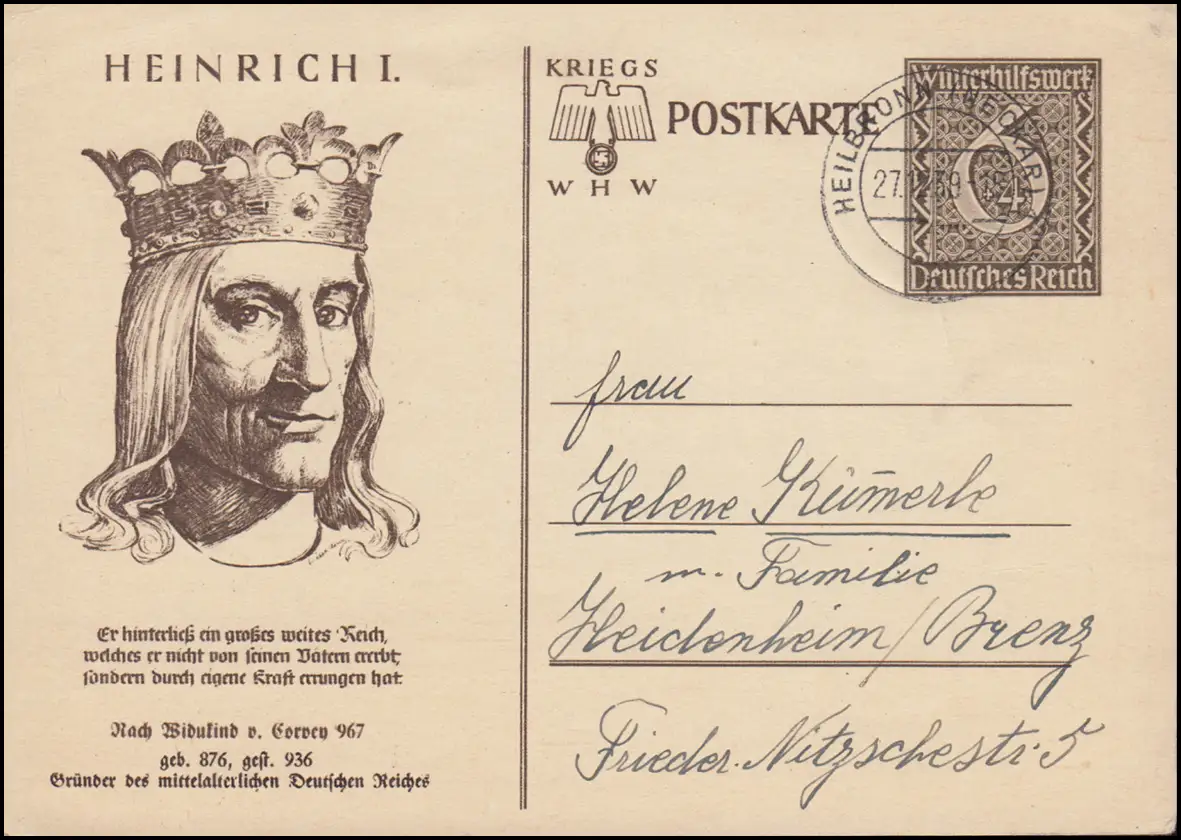 HEINRICH I.
Er hinterließ ein großes weites Reich,
welches er nicht von seinen Vätern ererbt,
sondern durch eigene Kraft errungen hat.
Nach Widukind v. Corvey 967
geb. 876, gest. 936
Gründer des mittelalterlichen Deutschen Reiches
KRIEGS
WHW
POSTKARTE
Winterhilfswerk
6 4
Deutsches Reich
HEILBRONN (NECKAR)
27. 39
Frau
Helene Küm̅erle
m. Familie
Heidenheim/Brenz
Frieder. Nitzschestr. 5